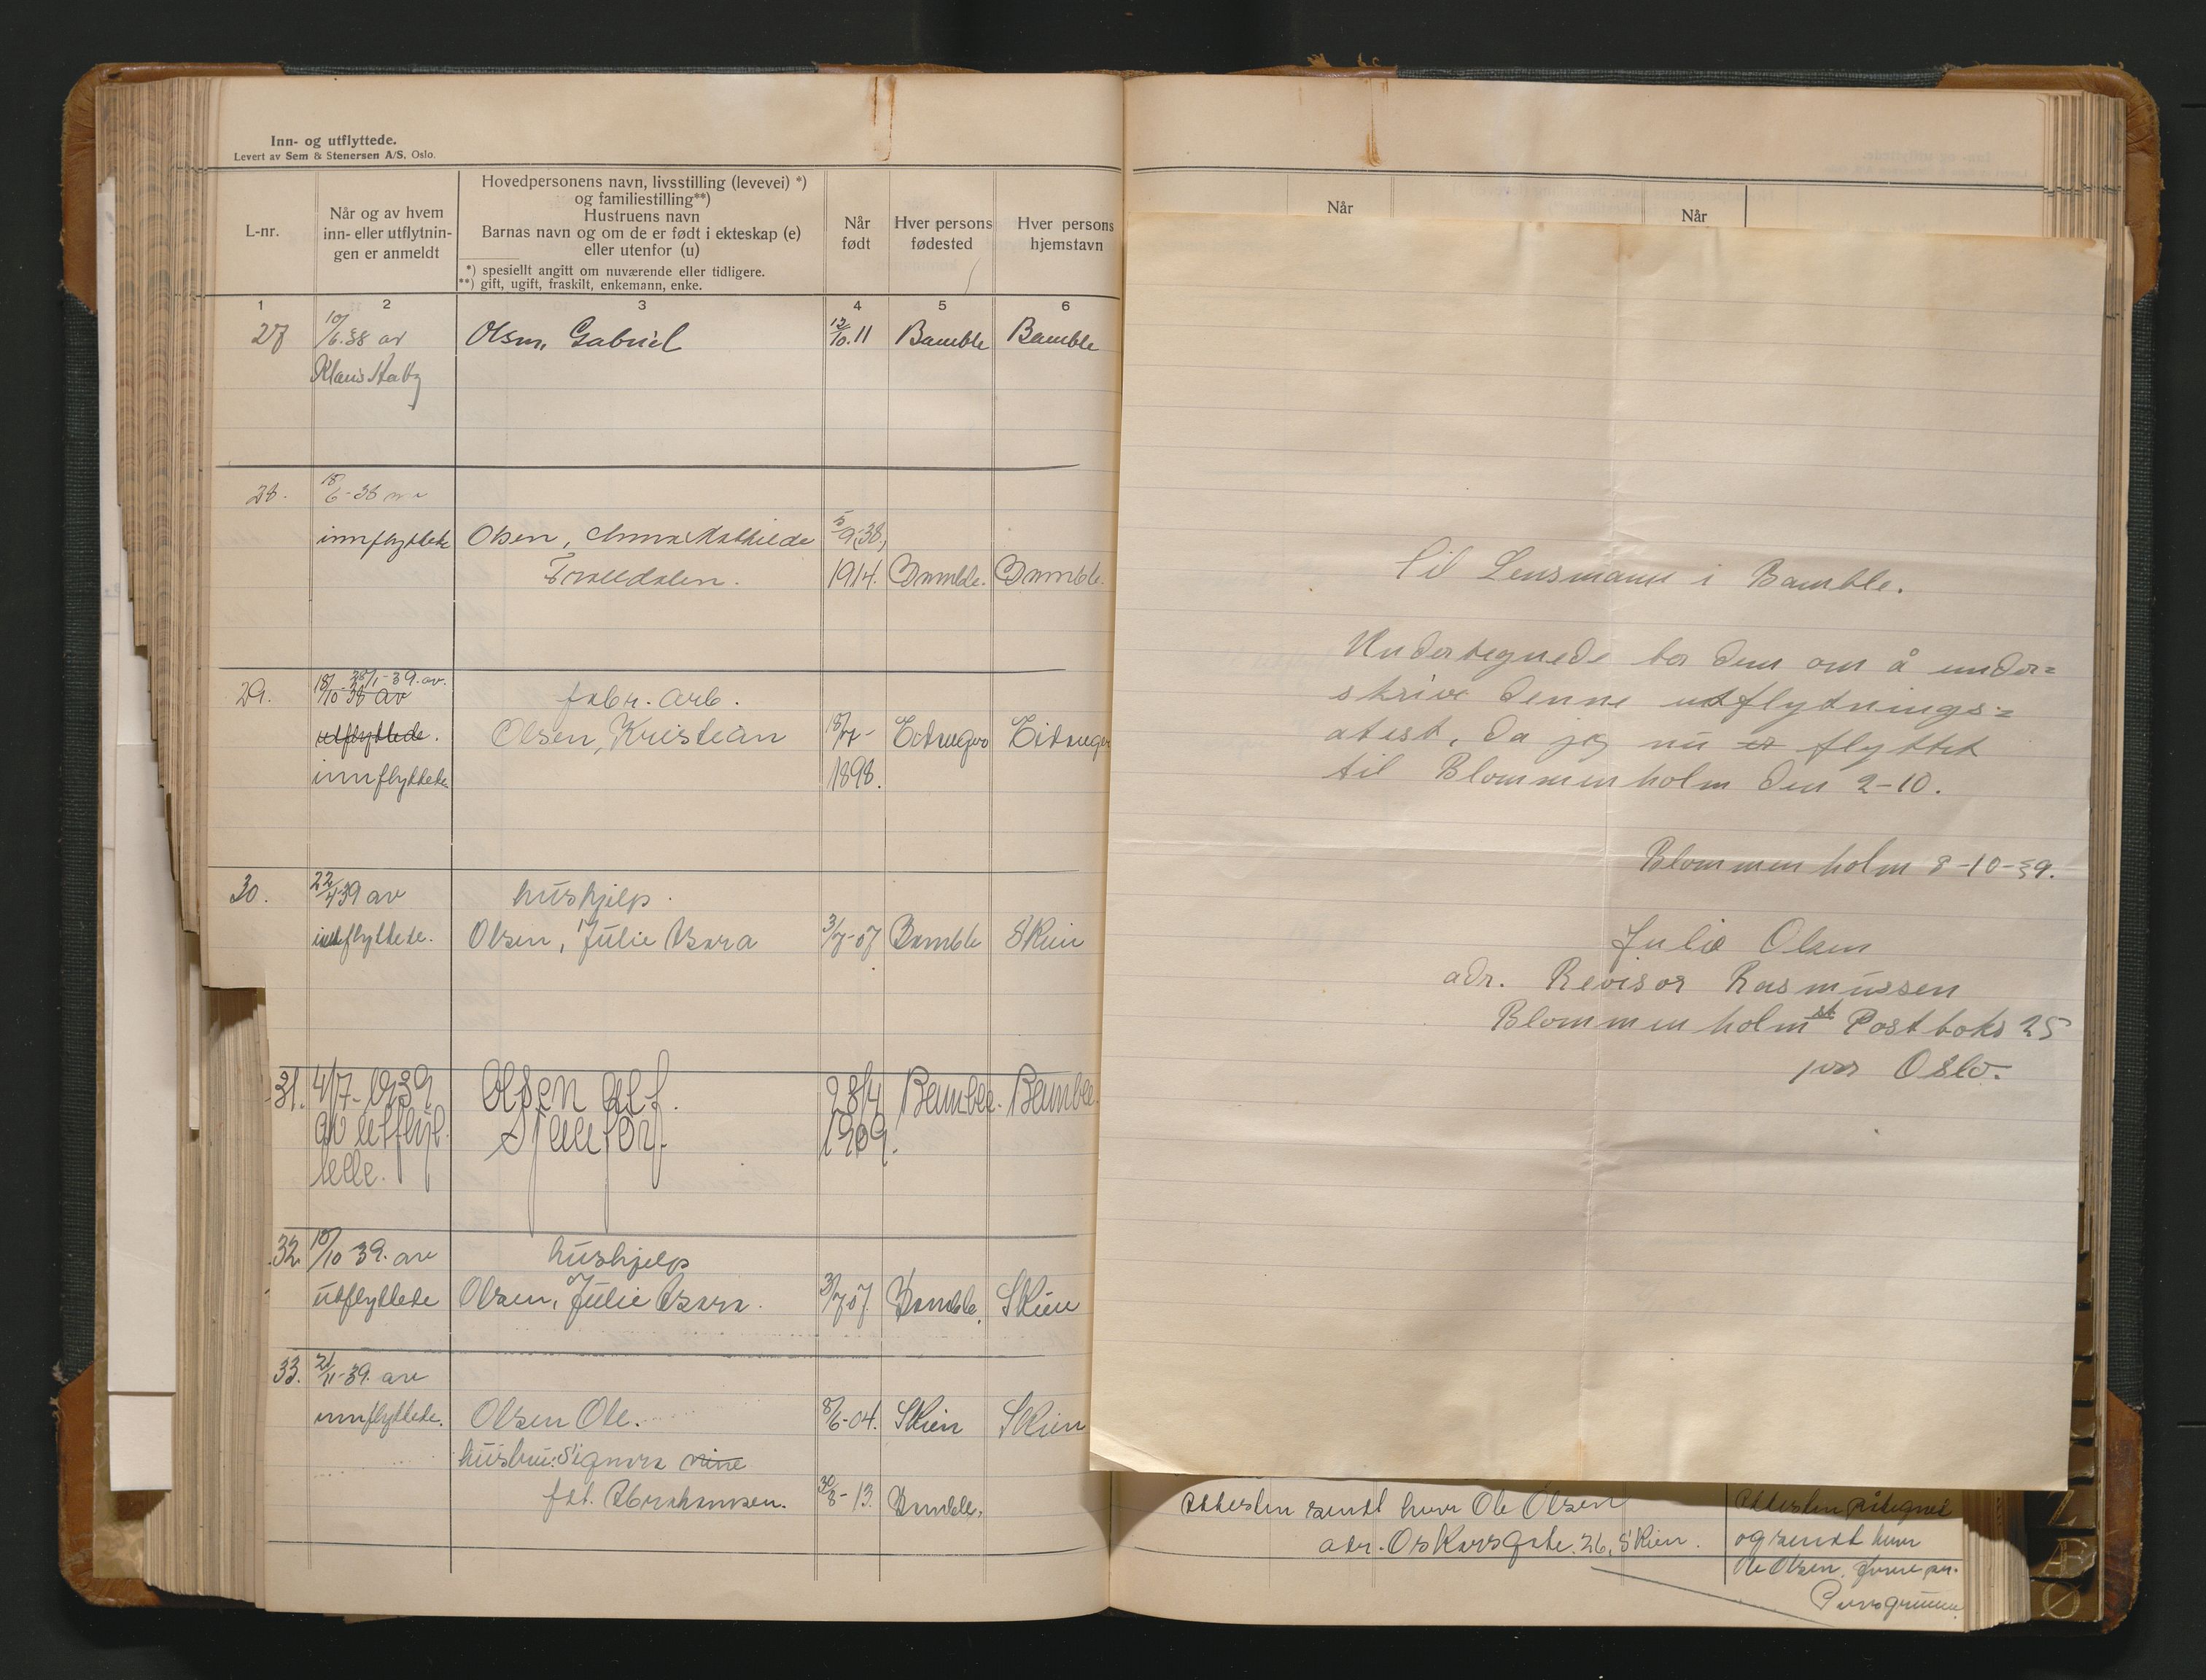 Inn- og utflyttede.
Levert av Sem & Stenersen A/S, Oslo.
L-nr.
Når og av hvem
inn- eller utflytnin-
gen er anmeldt
Hovedpersonens navn, livsstilling (levevei) *)
og familiestilling**)
Hustruens navn
Barnas navn og om de er født i ekteskap (e)
eller utenfor (u)
*) spesiellt angitt om nuværende eller tidligere.
**) gift, ugift, fraskilt, enkemann, enke.
Når
født
Hver persons
fødested
Hver persons
hjemstavn
1 2 3 4 5 6
27 10/6.38 av Olsen, Gabriel 12/10.11 Bamble Bamble
Klaus
28. 18/6-38
innflyttede Olsen, Anna Mathilde 5/9(38)
Tralldalen. 1914. Bamble. Bamble.
29. 18/10-38 av 28/1-39. av. fabr. arb.
utflyttede. Olsen, Kristian 18/7- Eidanger Eidanger
innflyttede 1898.
30. 22/4 39 av hushjelp.
innflyttede. Olsen, Julie Asora 3/7-07 Bamble Skien
31. 4/7-1939 Olsen Alf. 28/4 Bamble. Bamble.
av utflyt- 1909.
tede.
32. 10/10 39. av hushjelp
utflyttede Olsen, Julie Asora. 3/7 07. Bamble. Skien
33. 21/11-39. av
innflyttede. Olsen Ole. 8/6-04. Skien Skien
hustru: Signora
født Abrahamsen. 30/8-13. Bamble.
Når
Når
Til Lensmann i Bamble.
Undertegnede ber dem om å under=
skrive denne utflydnings=
atest, da jeg nu er flyttet
til Blommenholm den 2-10.
Blommenholm 8-10-39.
Julie Olsen
adr. Revisor Rasmussen
Blommenholm st Postboks 25
per Oslo.
Attesten sendt herr Ole Olsen
adr. Oskarsgate. 26, Skien.
Attesten påtegnet
og sendt herr
Ole Olsen.
Porsgrunn.
Z
Æ
Ø